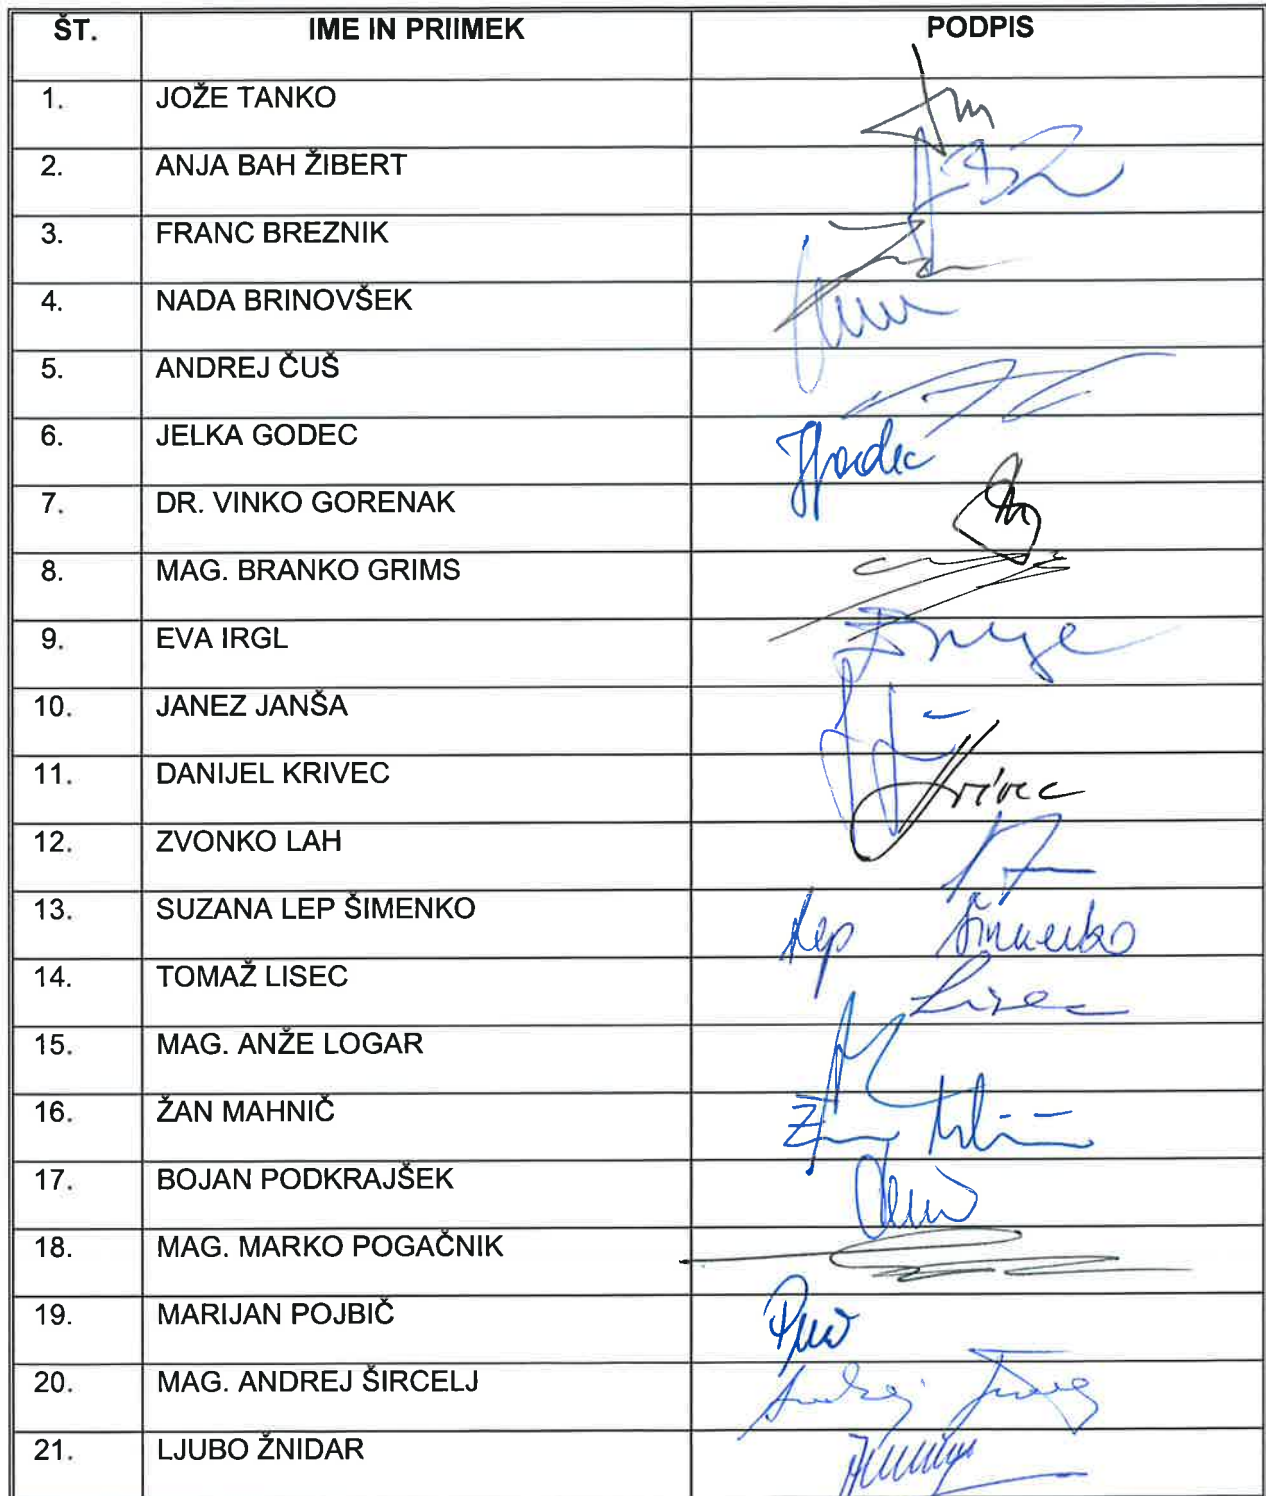 ŠT. IME IN PRIIMEK PODPIS
1. JOŽE TANKO
2. ANJA BAH ŽIBERT
3. FRANC BREZNIK
4. NADA BRINOVŠEK
5. ANDREJ ČUŠ
6. JELKA GODEC JGodec
7. DR. VINKO GORENAK
8. MAG. BRANKO GRIMS
9. EVA IRGL
10. JANEZ JANŠA
11. DANIJEL KRIVEC Krivec
12. ZVONKO LAH
13. SUZANA LEP ŠIMENKO Lep Šimenko
14. TOMAŽ LISEC Lisec
15. MAG. ANŽE LOGAR
16. ŽAN MAHNIČ
17. BOJAN PODKRAJŠEK
18. MAG. MARKO POGAČNIK
19. MARIJAN POJBIČ
20. MAG. ANDREJ ŠIRCELJ Andrej
21. LJUBO ŽNIDAR